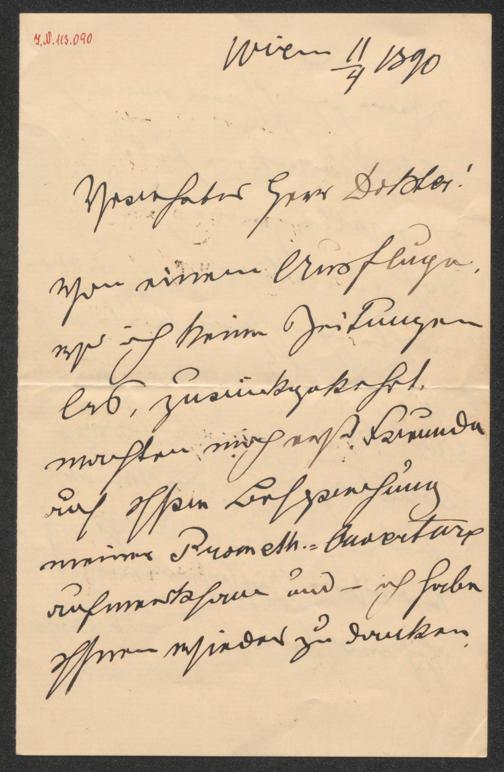 I.N. 113.090
Wien 11/4 1890
Verehrter Herr Doktor!
Von einem Ausfluge,
wo ich keine Zeitungen
las, zurückgekehrt,
machten mich erst Freunde
auf Ihre Besprechung
meiner Prometh.=Ouverture
aufmerksam und – ich habe
Ihnen wieder zu danken.